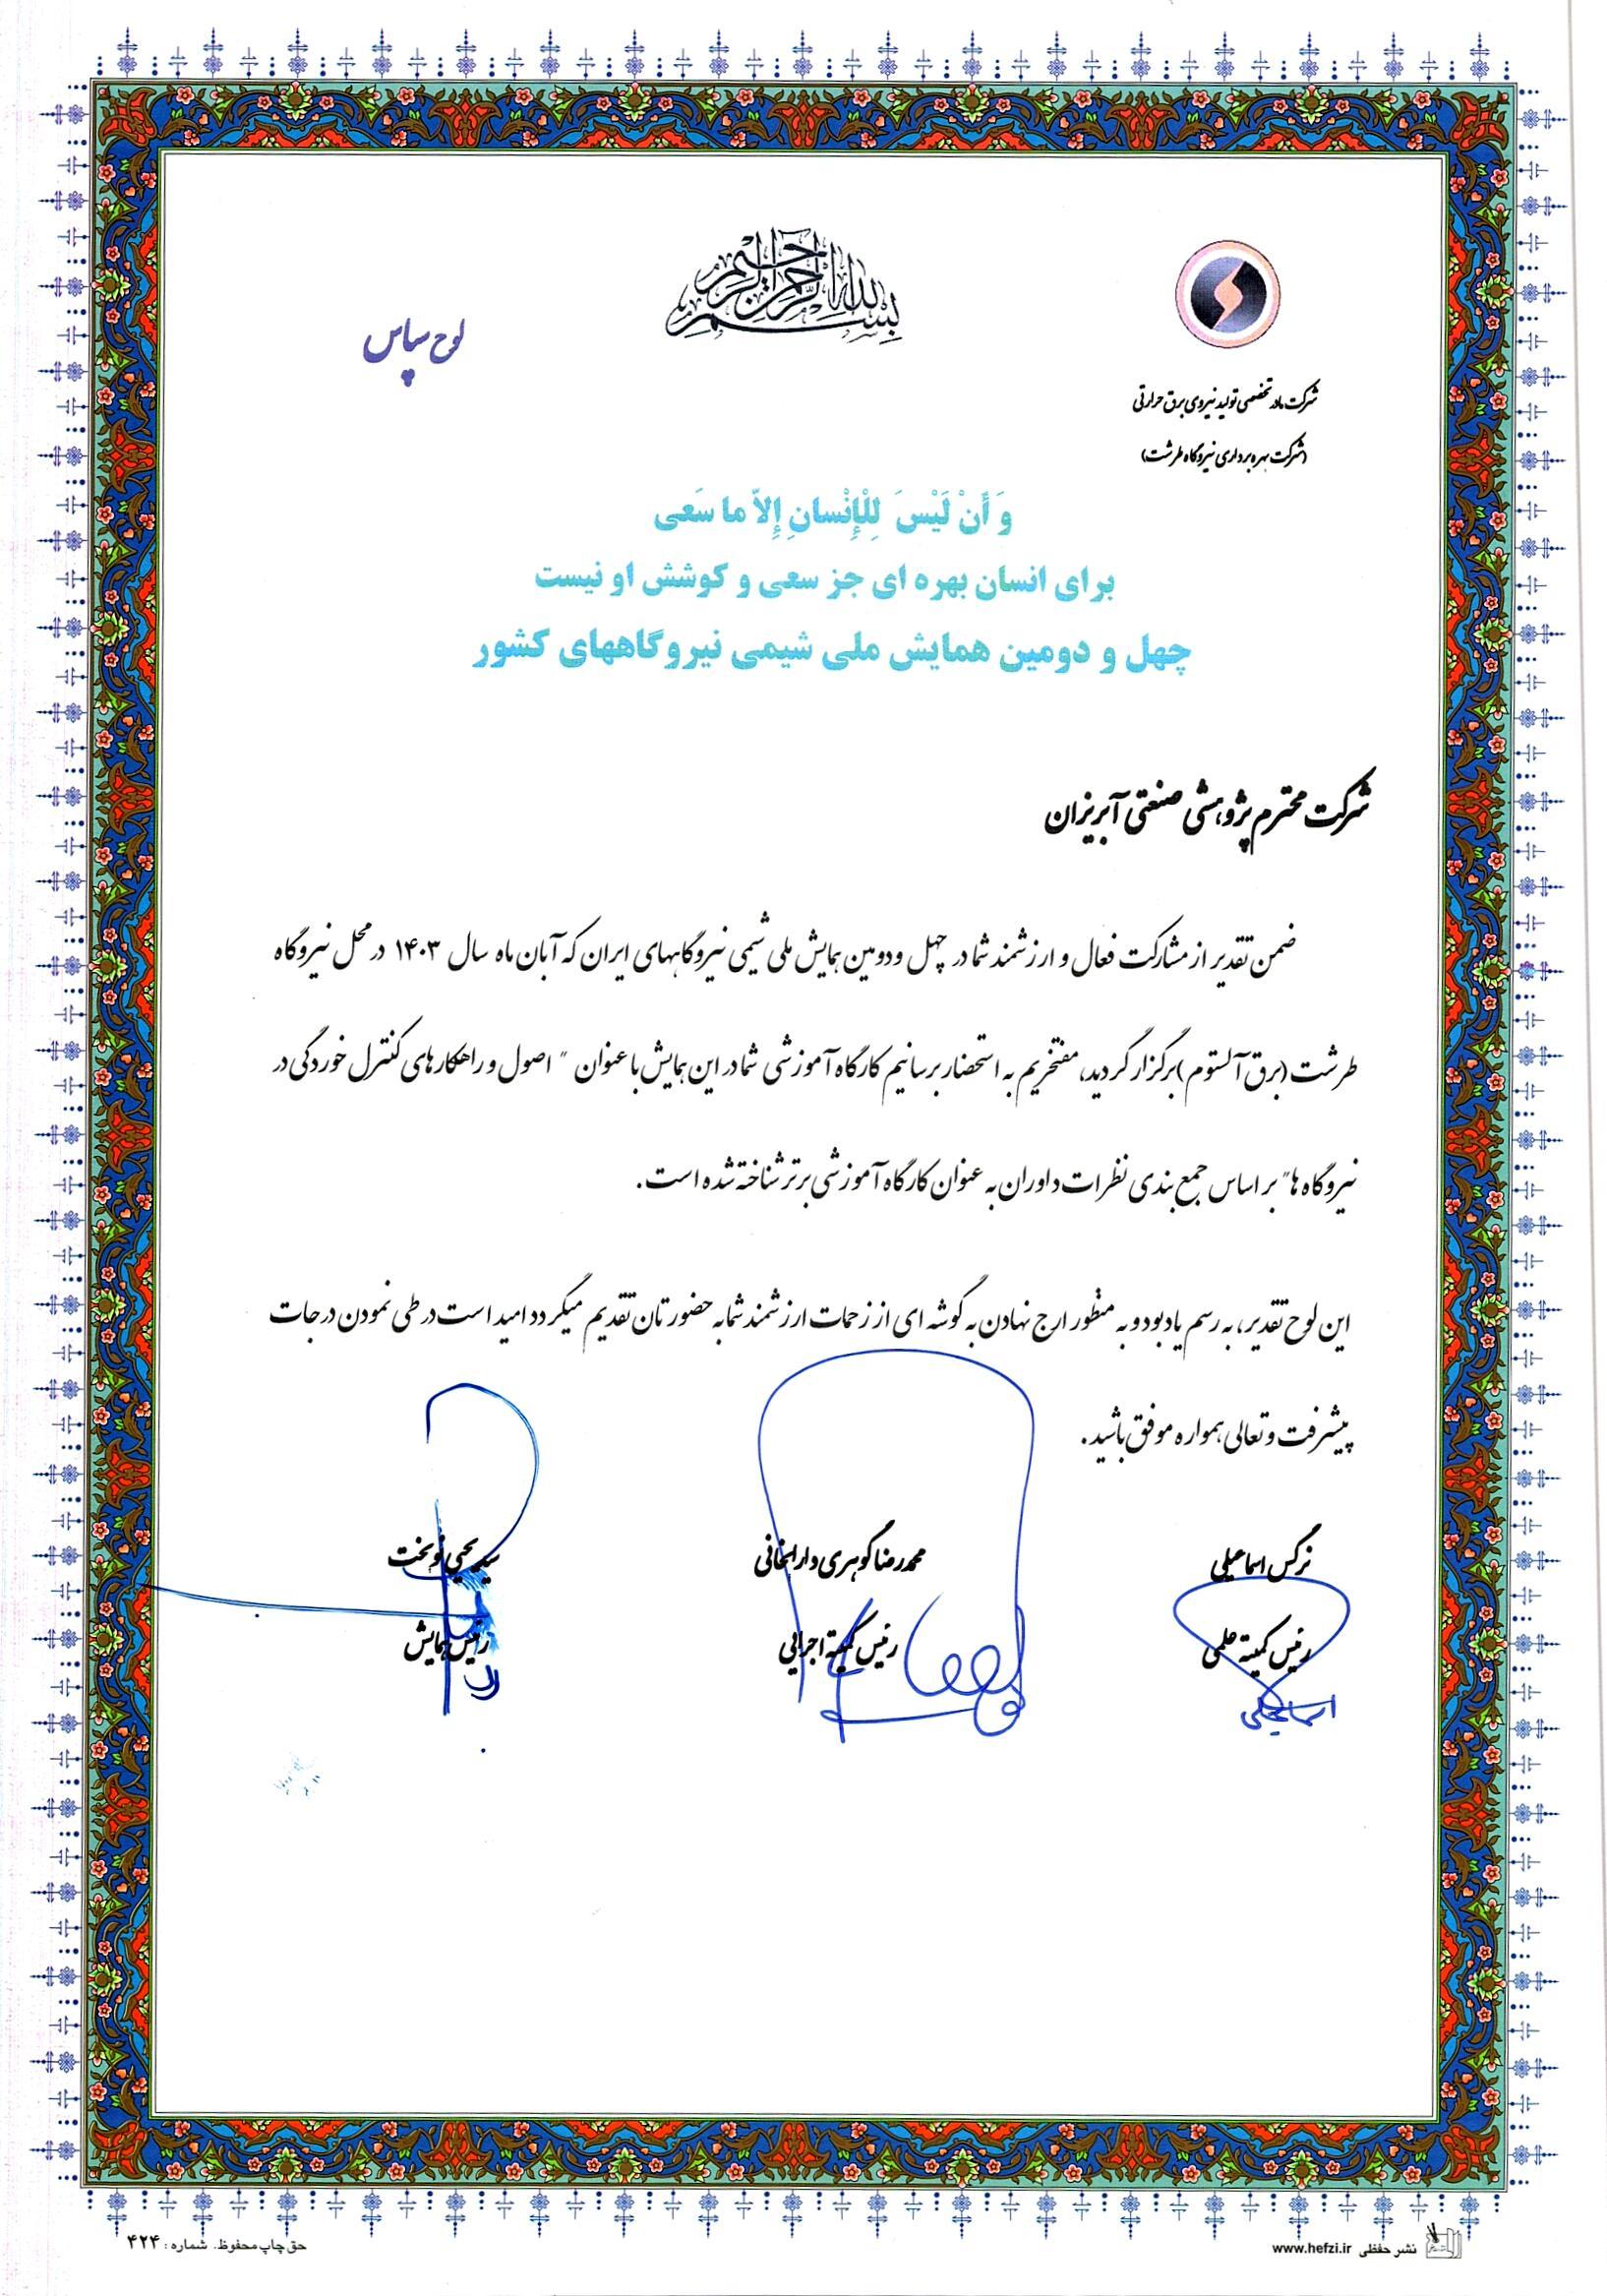 بسم الله الرحمن الرحیم
لوح سپاس
شرکت مادر تخصصی تولید نیروی برق حرارتی
(شرکت بهره برداری نیروگاه طرشت)
وَ أَنْ لَيْسَ لِلْإِنْسانِ إِلاّ ما سَعَى
برای انسان بهره ای جز سعی و کوشش او نیست
چهل و دومین همایش ملی شیمی نیروگاههای کشور
شرکت محترم پژوهشی صنعتی آبریزان
ضمن تقدیر از مشارکت فعال و ارزشمند شما در چهل و دومین همایش ملی شیمی نیروگاههای ایران که آبان ماه سال ۱۴۰۳ در محل نیروگاه
طرشت (برق آلستوم) برگزار گردید، مفتخریم به استحضار برسانیم کارگاه آموزشی شما در این همایش با عنوان " اصول و راهکارهای کنترل خوردگی در
نیروگاه ها" بر اساس جمع بندی نظرات داوران به عنوان کارگاه آموزشی برتر شناخته شده است.
این لوح تقدیر، به رسم یادبود و به منظور ارج نهادن به گوشه ای از زحمات ارزشمند شما به حضورتان تقدیم میگردد امید است در طی نمودن درجات
پیشرفت و تعالی همواره موفق باشید.
نرگس اسماعیلی محمدرضا گوهری دارابخانی سید یحیی نوبخت
رئیس کمیته علمی رئیس کمیته اجرایی رئیس همایش
اسماعیلی
نشر حفظی www.hefzi.ir حق چاپ محفوظ. شماره: ۴۲۴